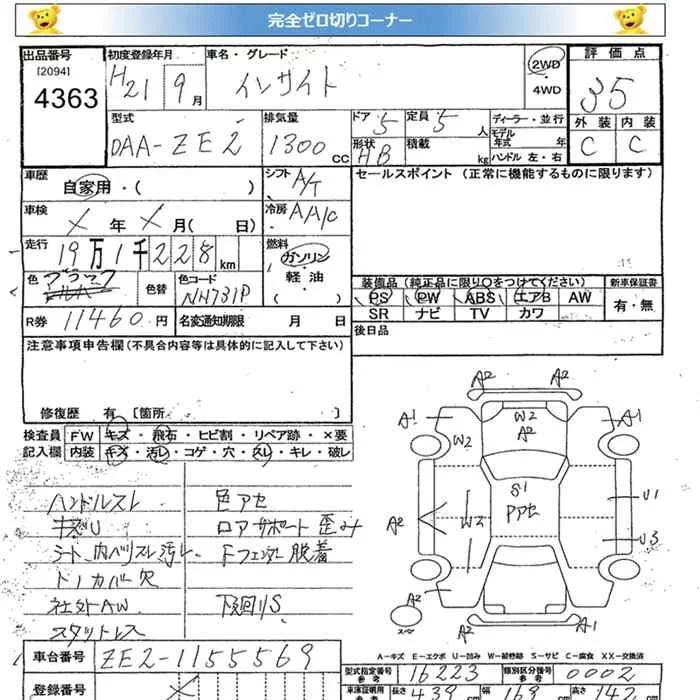 完全ゼロ切りコーナー
出品番号 初度登録年月 車名・グレード 評価点
[2094] 4363
H21 9月 インサイト 2WD・4WD 35
型式 DAA-ZE2 排気量 1300cc ドア 5 定員 5人 ディーラー・並行 外装 内装
形状 HB 積載 kg モデル年式 年 C C
ハンドル 左・右
車歴 自家用・( ) シフト A/T セールスポイント(正常に機能するものに限ります)
車検 X年 X月( 日) 冷房 AA/C
走行 19万1千228km 燃料 ガソリン 軽油 ( )
色 ブラック 色替 色コード NH731P 装備品(純正品に限り○をつけてください) 新車保証書
PS PW ABS エアB AW 有・無
SR ナビ TV カワ
R券 11460円 名変通知期限 月 日 後日品
注意事項申告欄(不具合内容等は具体的に記入して下さい)
修復歴 有 [箇所 ]
検査員 FW キズ・飛石・ヒビ割・リペア跡・×要
記入欄 内装 キズ・汚レ・コゲ・穴・スレ・キレ・破レ
ハンドルスレ 色アセ
キズU ロアサポート歪み
シート、内ベリスレ汚レ Fフェンダー脱着
ドノカバー欠
社外AW 下廻りS
スタットレス
A2 A2
A1 W2 A2 A1
W2
S1
PPセ U1
A2 W2 U3
A2 A2
A2 A1
A-キズ E-エクボ U-凹み W-補修跡 S-サビ C-腐食 XX-交換済
車台番号 ZE2-1155569 型式指定番号 参考 16223 類別区分番号 参考 0002
登録番号 X 車庫証明用 参考 長さ 439cm 幅 169cm 高さ 142cm